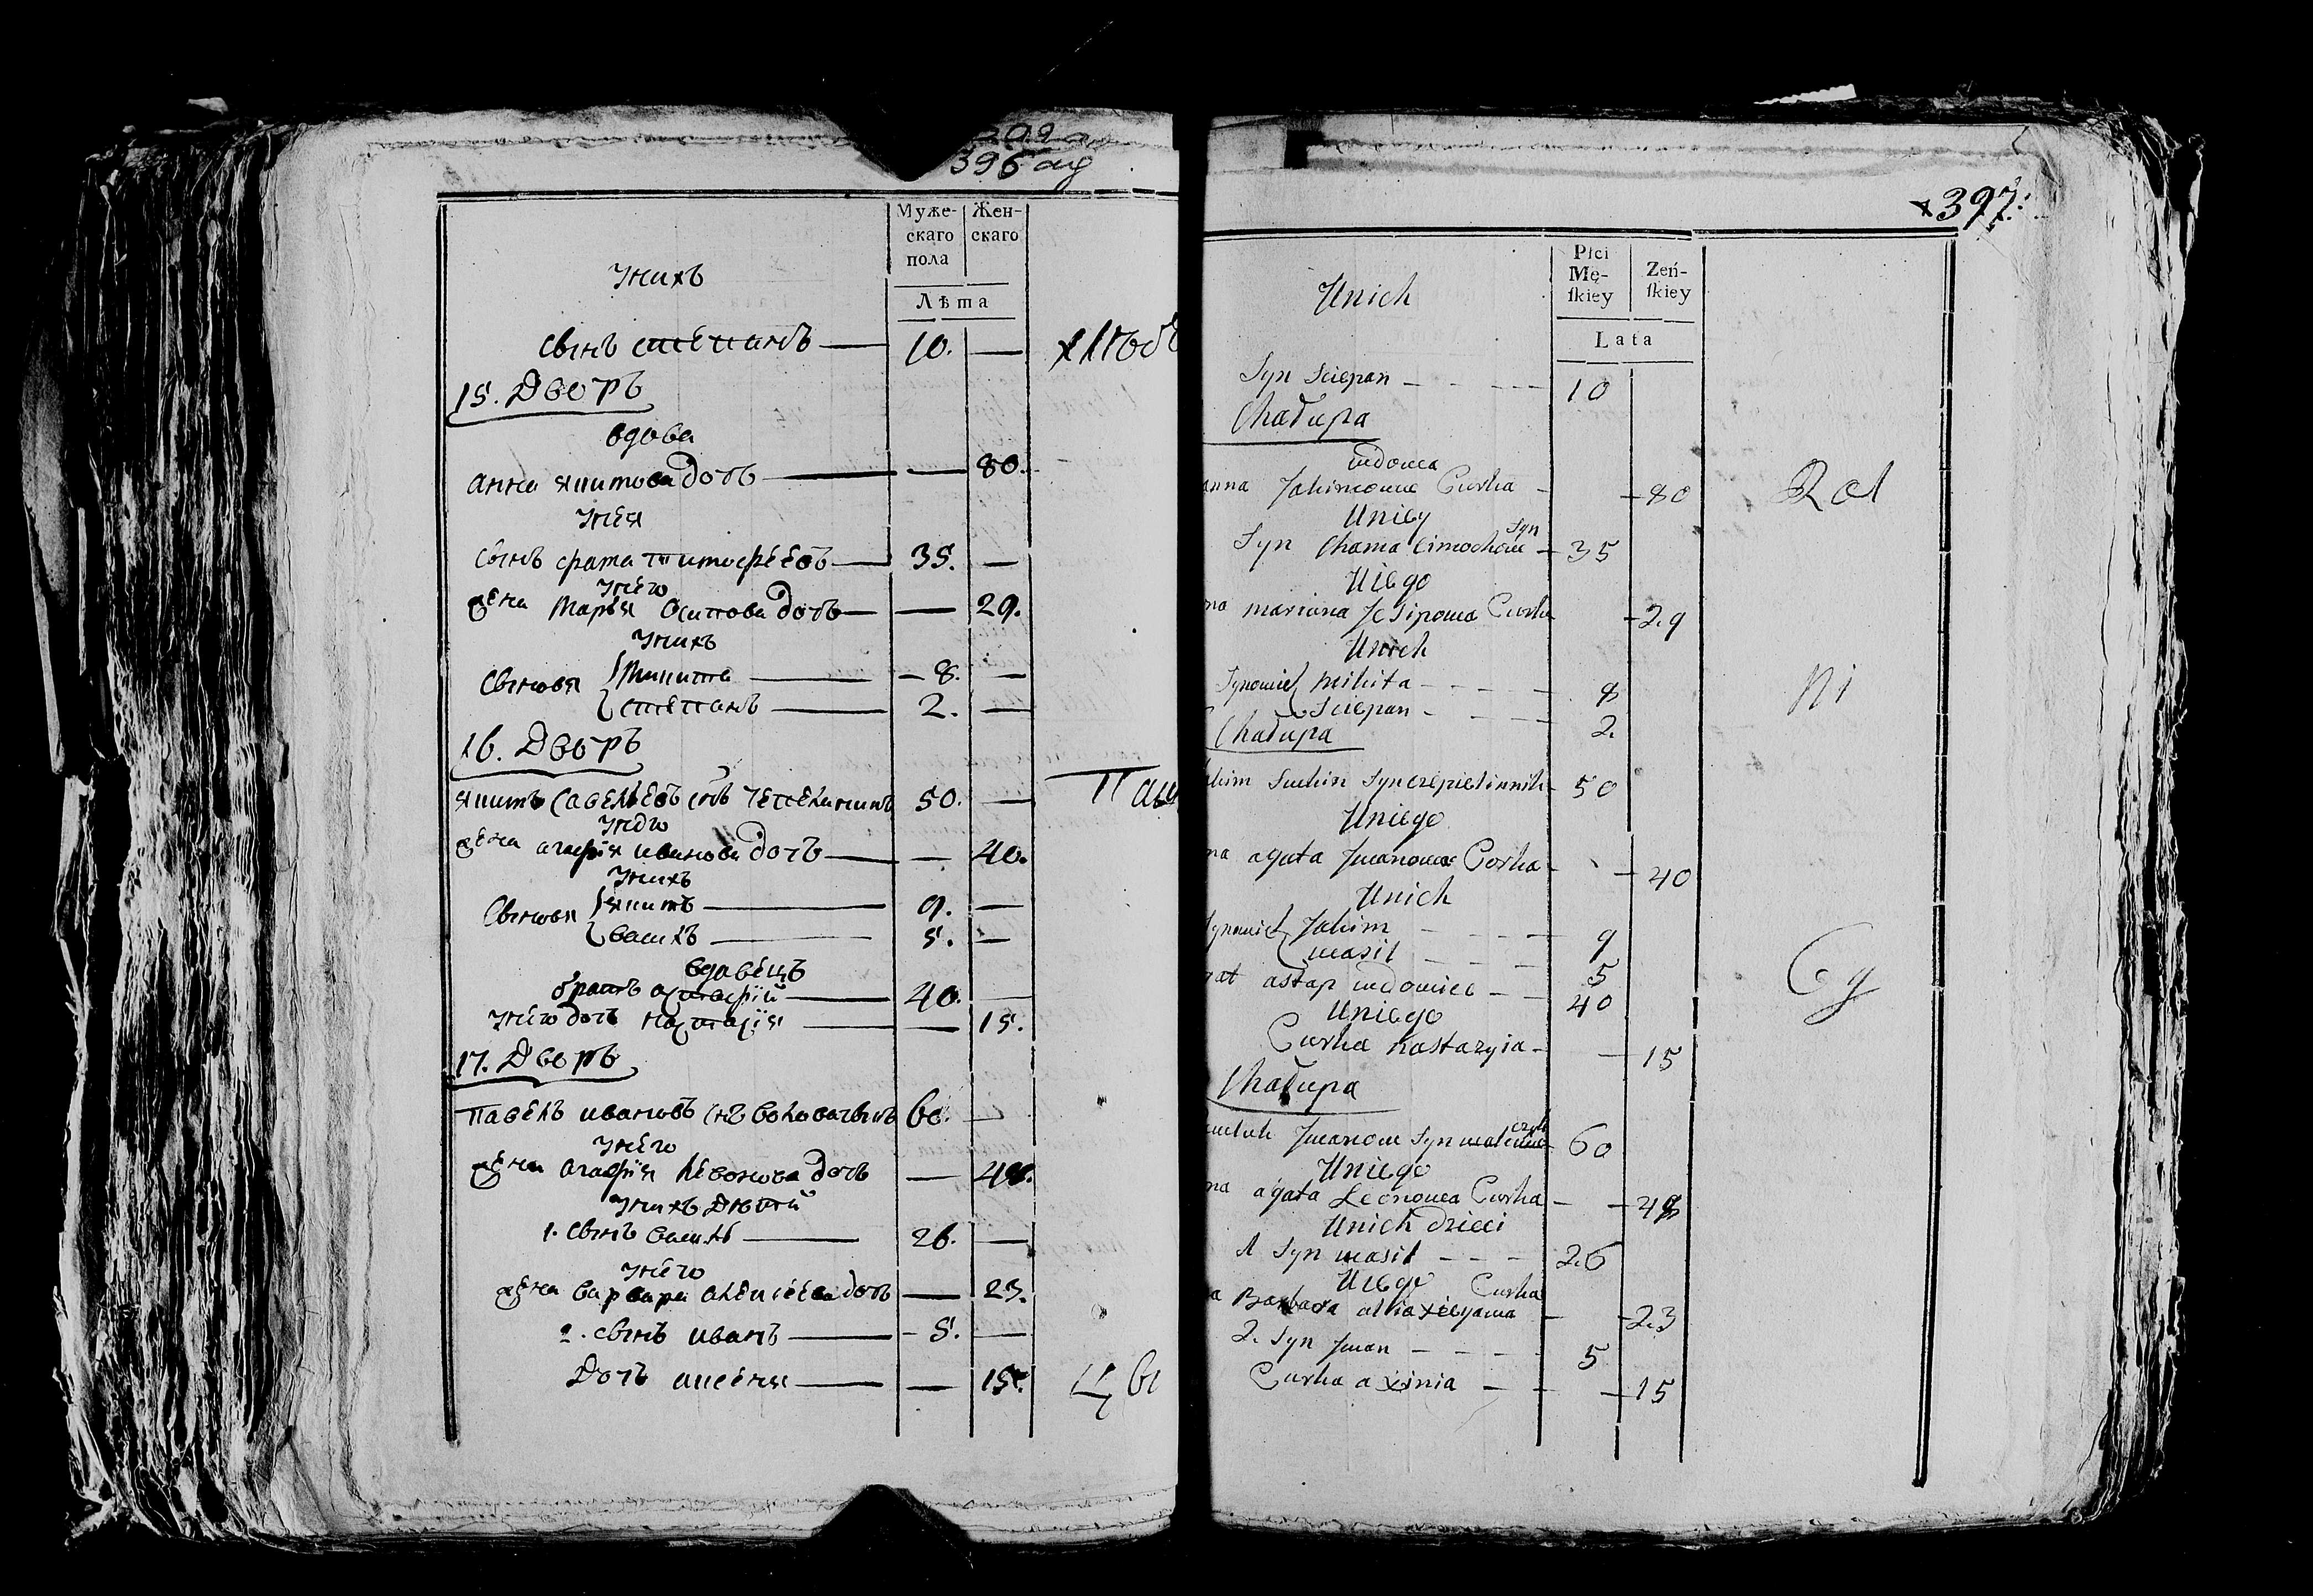 396 об
Муже-
скаго
пола
Жен-
скаго
Лѣта
Унихъ
сынъ степанъ — 10. —
15. Дворъ
вдова
анна якимова дочь — 80.
Унея
сынъ фама тимофѣевъ — 35. —
Унего
жена марья осипова дочь — 29.
Унихъ
сыновя микита — 8. —
степанъ — 2. —
16. Дворъ
якимъ савельевъ снъ 50. —
Унего
жена агафія иванова дочь — 40.
Унихъ
сыновя якимъ — 9. —
василъ — 5. —
вдавецъ
братъ астафій — 40. —
Унего дочь настазія — 15.
17. Дворъ
павелъ ивановъ снъ 60. —
Унего
жена агафія левонова дочь — 48.
Унихъ дѣтей
1. сынъ василь — 26. —
Унего
жена варвара алексеева дочь — 23.
2. сынъ иванъ — 5. —
Дочь аксеня — 15.
397.
Płci
Mę-
ſkiey
Zeń-
ſkiey
Lata
Unich
Syn Sciepan — 10
Chałupa
wdowa
anna Jakimowa Curka — 80
Uniey
Syn Chama Cimochow Syn — 35
Uiego
na mariana Jesipowa Curka — 29
Unich
Synowie mikita — 8
Sciepan — 2.
Chałupa
kim Syn 50
Uniego
na agata Jwanowa Corka — 40
Unich
Synowie Jakim — 9
wasil — 5
rat astap wdowiec — 40
Uniego
Curka nastazyia — 15
Chałupa
Jwanow Syn 60
Uniego
na agata Leonowa Curka — 48
Unich dzieci
1 Syn wasil — 26
Uiego Curka
a Barbara — 23
2. Syn Jwan — 5
Curka axinia — 15